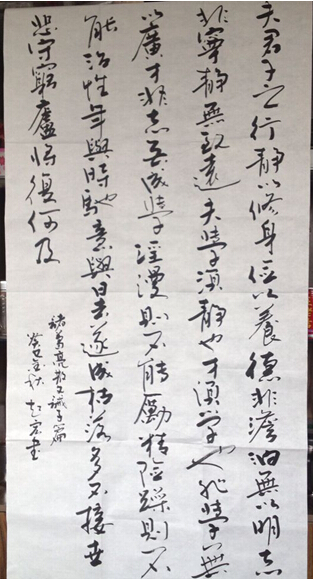 夫君子之行静以修身俭以養德非澹泊無以明志
非寧静無以致遠夫學須静也才須學也非學無
以廣才非志無以成學淫漫則不能勵精險躁則不
能治性年與時馳意與日去遂成枯落多不接世
悲守窮廬將復何及
諸葛亮散文誡子篇
癸巳年秋